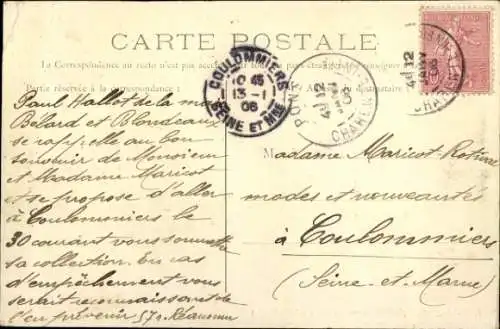 CARTE POSTALE
La Correspondance au recto n'est pas acceptée
Partie réservée à la correspondance
destinataire
COULOMMIERS
10 45
13 - 1
06
SEINE ET MNE
PONT
CHAREN
12
Paul Hallot de la mon
Bélard et Blondeaux
se rappelle au bon
souvenir de Monsieur
et Madame Maricot
et se propose d'aller
à Coulommiers le
30 courant vous soumettre
sa collection. En cas
d'empêchement vous
serait reconnaissant de
l'en prévenir 57 r. Réaumur
Madame Maricot-Rotival
modes et nouveautés
à Coulommiers
(Seine-et-Marne)